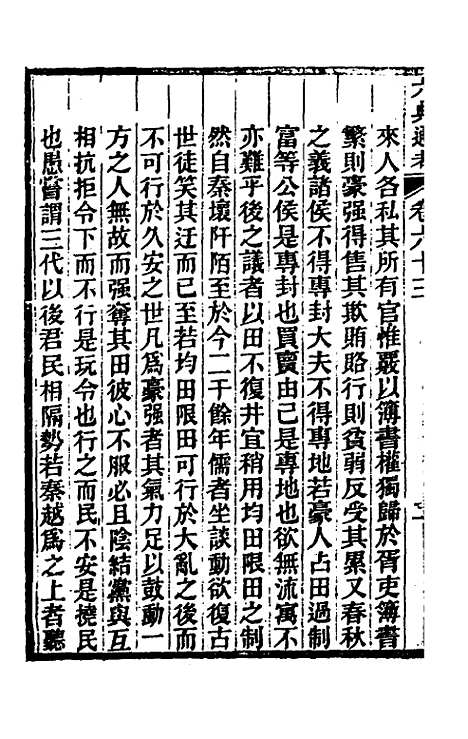 六典通考 卷六十三
來人各私其所有官惟覈以簿書權獨歸於胥吏簿書
繁則豪强得售其欺賄賂行則貧弱反受其累又春秋
之義諸侯不得專封大夫不得專地若豪人占田過制
富等公侯是專封也買賣由己是專地也欲無流寓不
亦難乎後之議者以田不復井宜稍用均田限田之制
然自秦壞阡陌至於今二千餘年儒者坐談動欲復古
世徒笑其迂而已至若均田限田可行於大亂之後而
不可行於久安之世凡爲豪强者其氣力足以鼓動一
方之人無故而强奪其田彼心不服必且陰結黨與互
相抗拒令下而不行是玩令也行之而民不安是撓民
也愚嘗謂三代以後君民相隔勢若秦越爲之上者聽